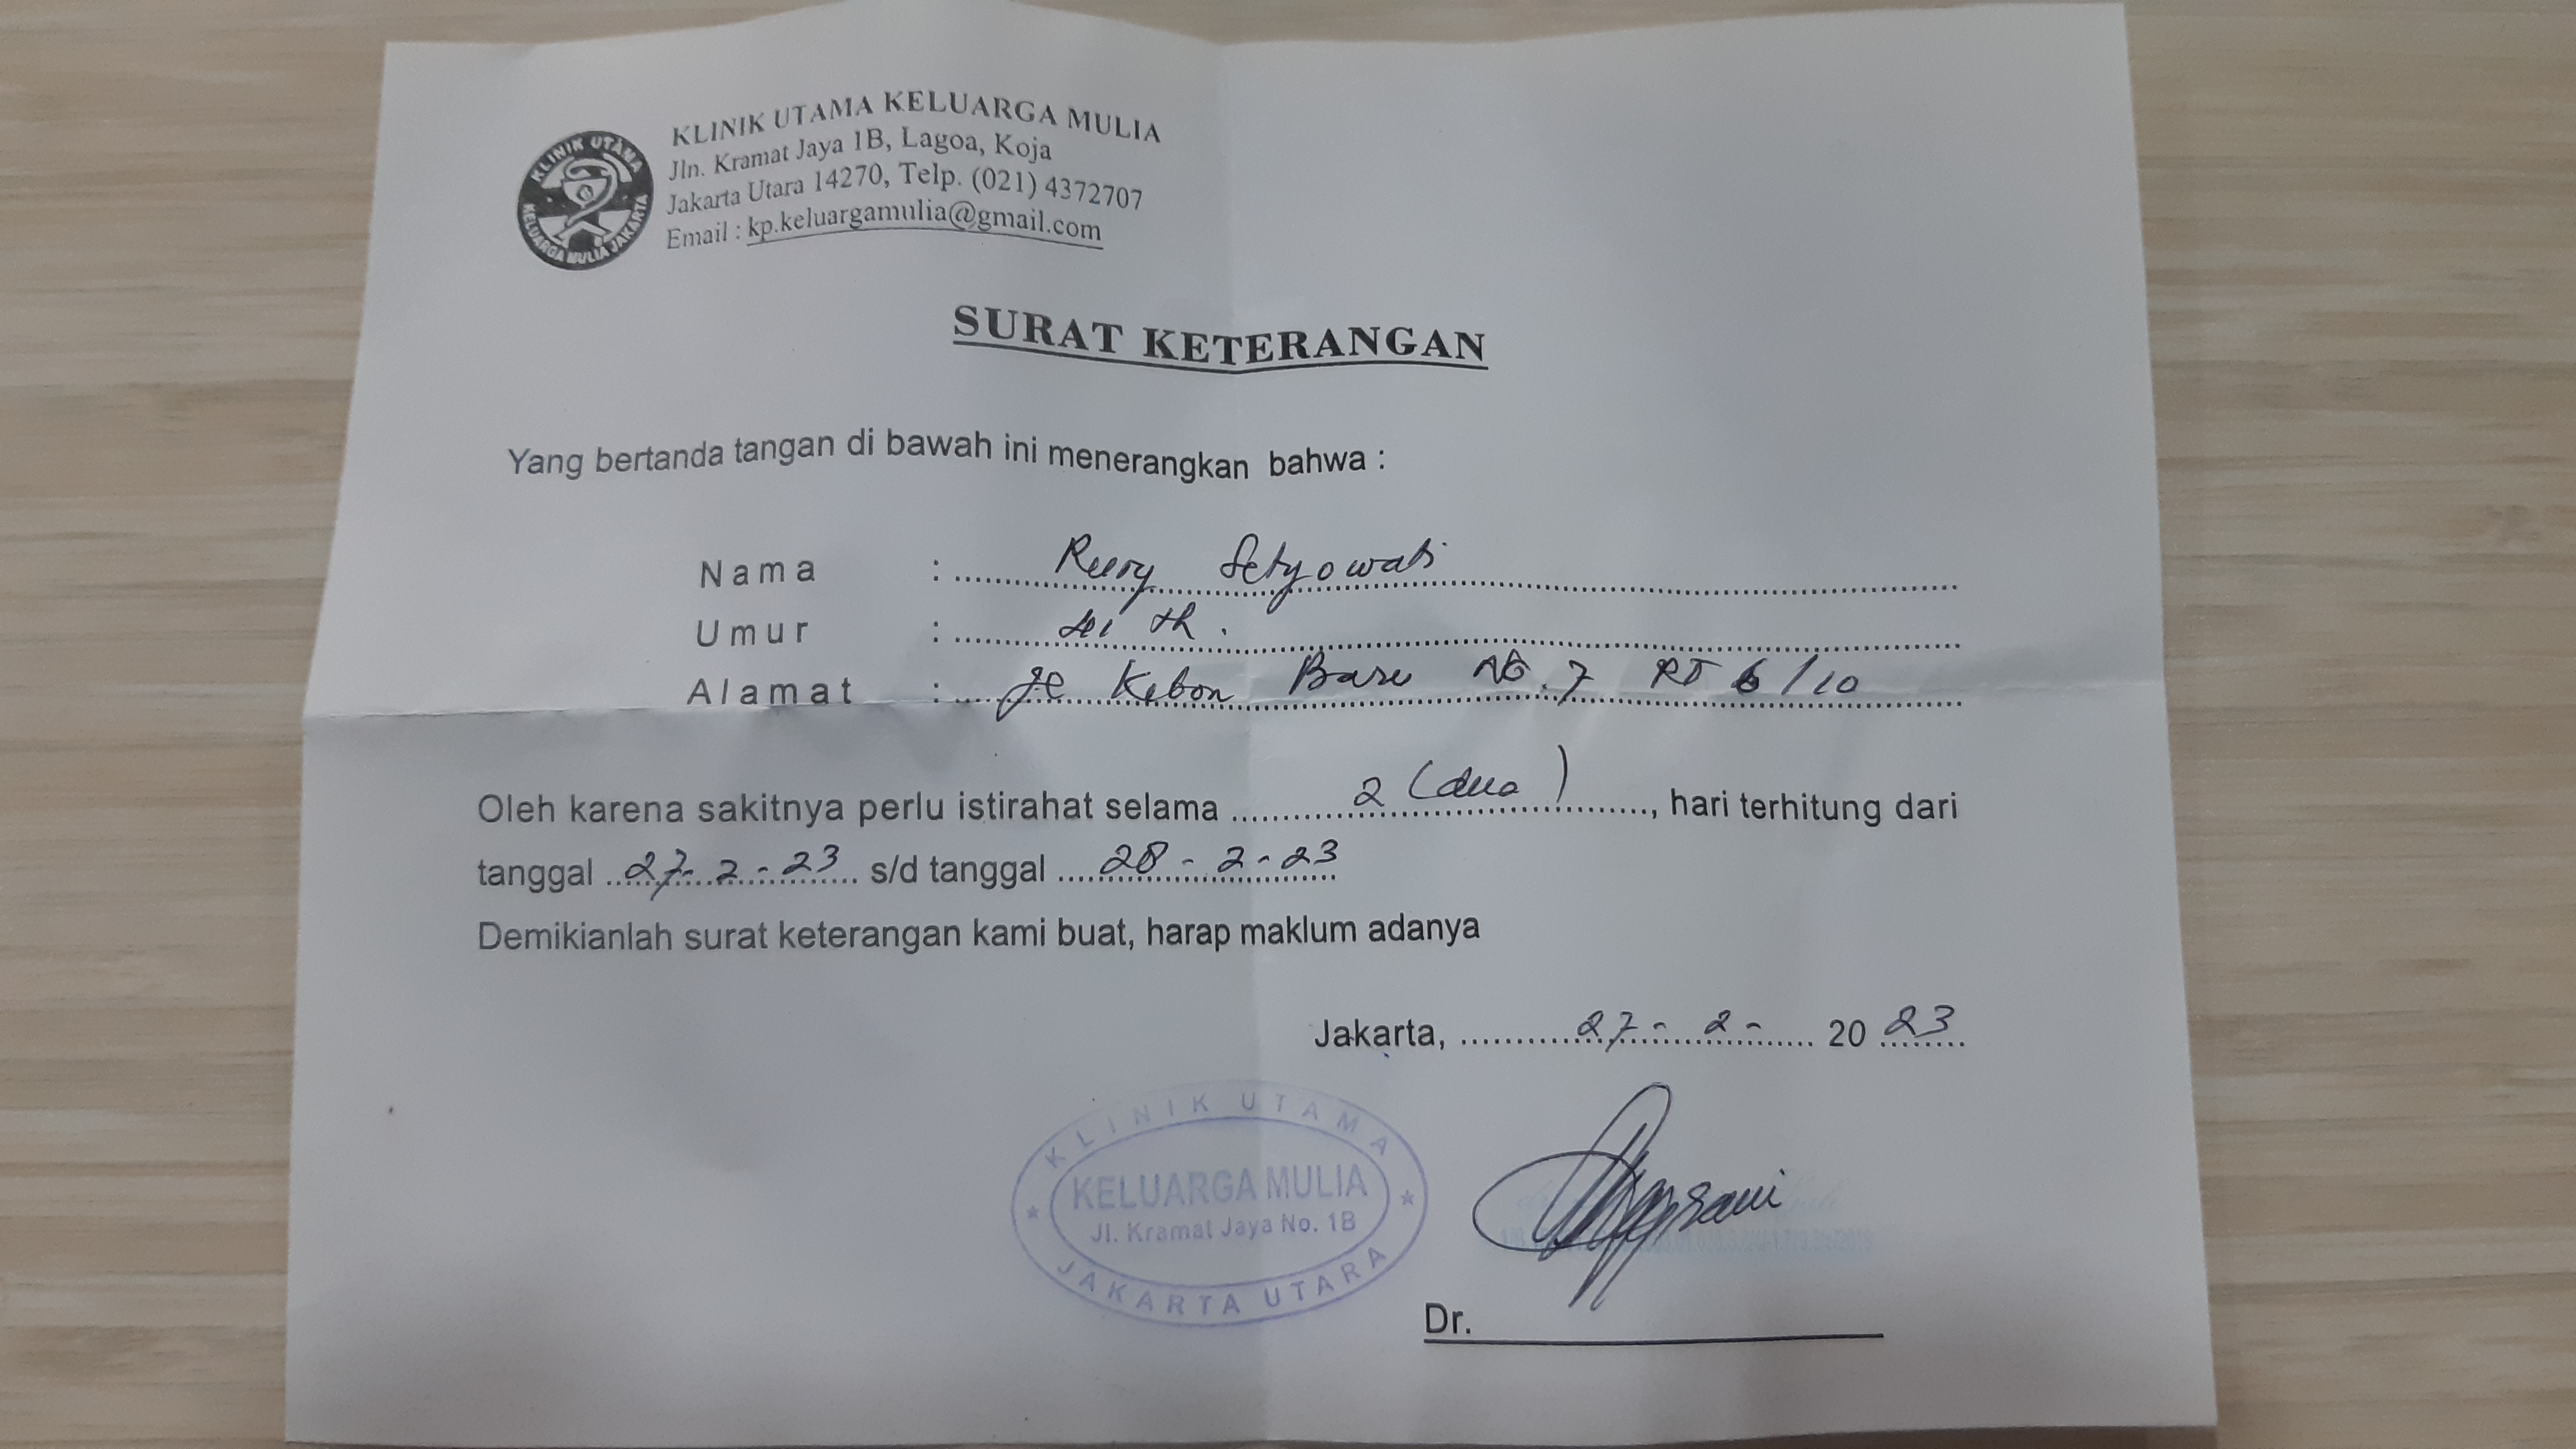 KLINIK UTAMA KELUARGA MULIA
Jln. Kramat Jaya 1B, Lagoa, Koja
Jakarta Utara 14270, Telp. (021) 4372707
Email : kp.keluargamulia@gmail.com
KLINIK UTAMA
KELUARGA MULIA JAKARTA
SURAT KETERANGAN
Yang bertanda tangan di bawah ini menerangkan bahwa :
Nama : Rury Setyowati
Umur : 41 th.
Alamat : Jl Kebon Baru No. 7 RT 6/10
Oleh karena sakitnya perlu istirahat selama 2 (dua), hari terhitung dari
tanggal 27-2-23 s/d tanggal 28-2-23
Demikianlah surat keterangan kami buat, harap maklum adanya
Jakarta, 27-2-2023
KLINIK UTAMA
KELUARGA MULIA
Jl. Kramat Jaya No. 1B
JAKARTA UTARA
Dr.